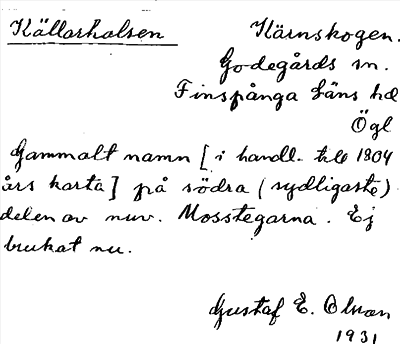 Källarhalsen Kärnskogen.
Godegårds sn.
Finspånga läns hd
Ögl
Gammalt namn [i handl. till 1804
års karta] på södra (sydligaste)
delen av nuv. Mosstegarna. Ej
brukat nu.
Gustaf E. Olson
1931